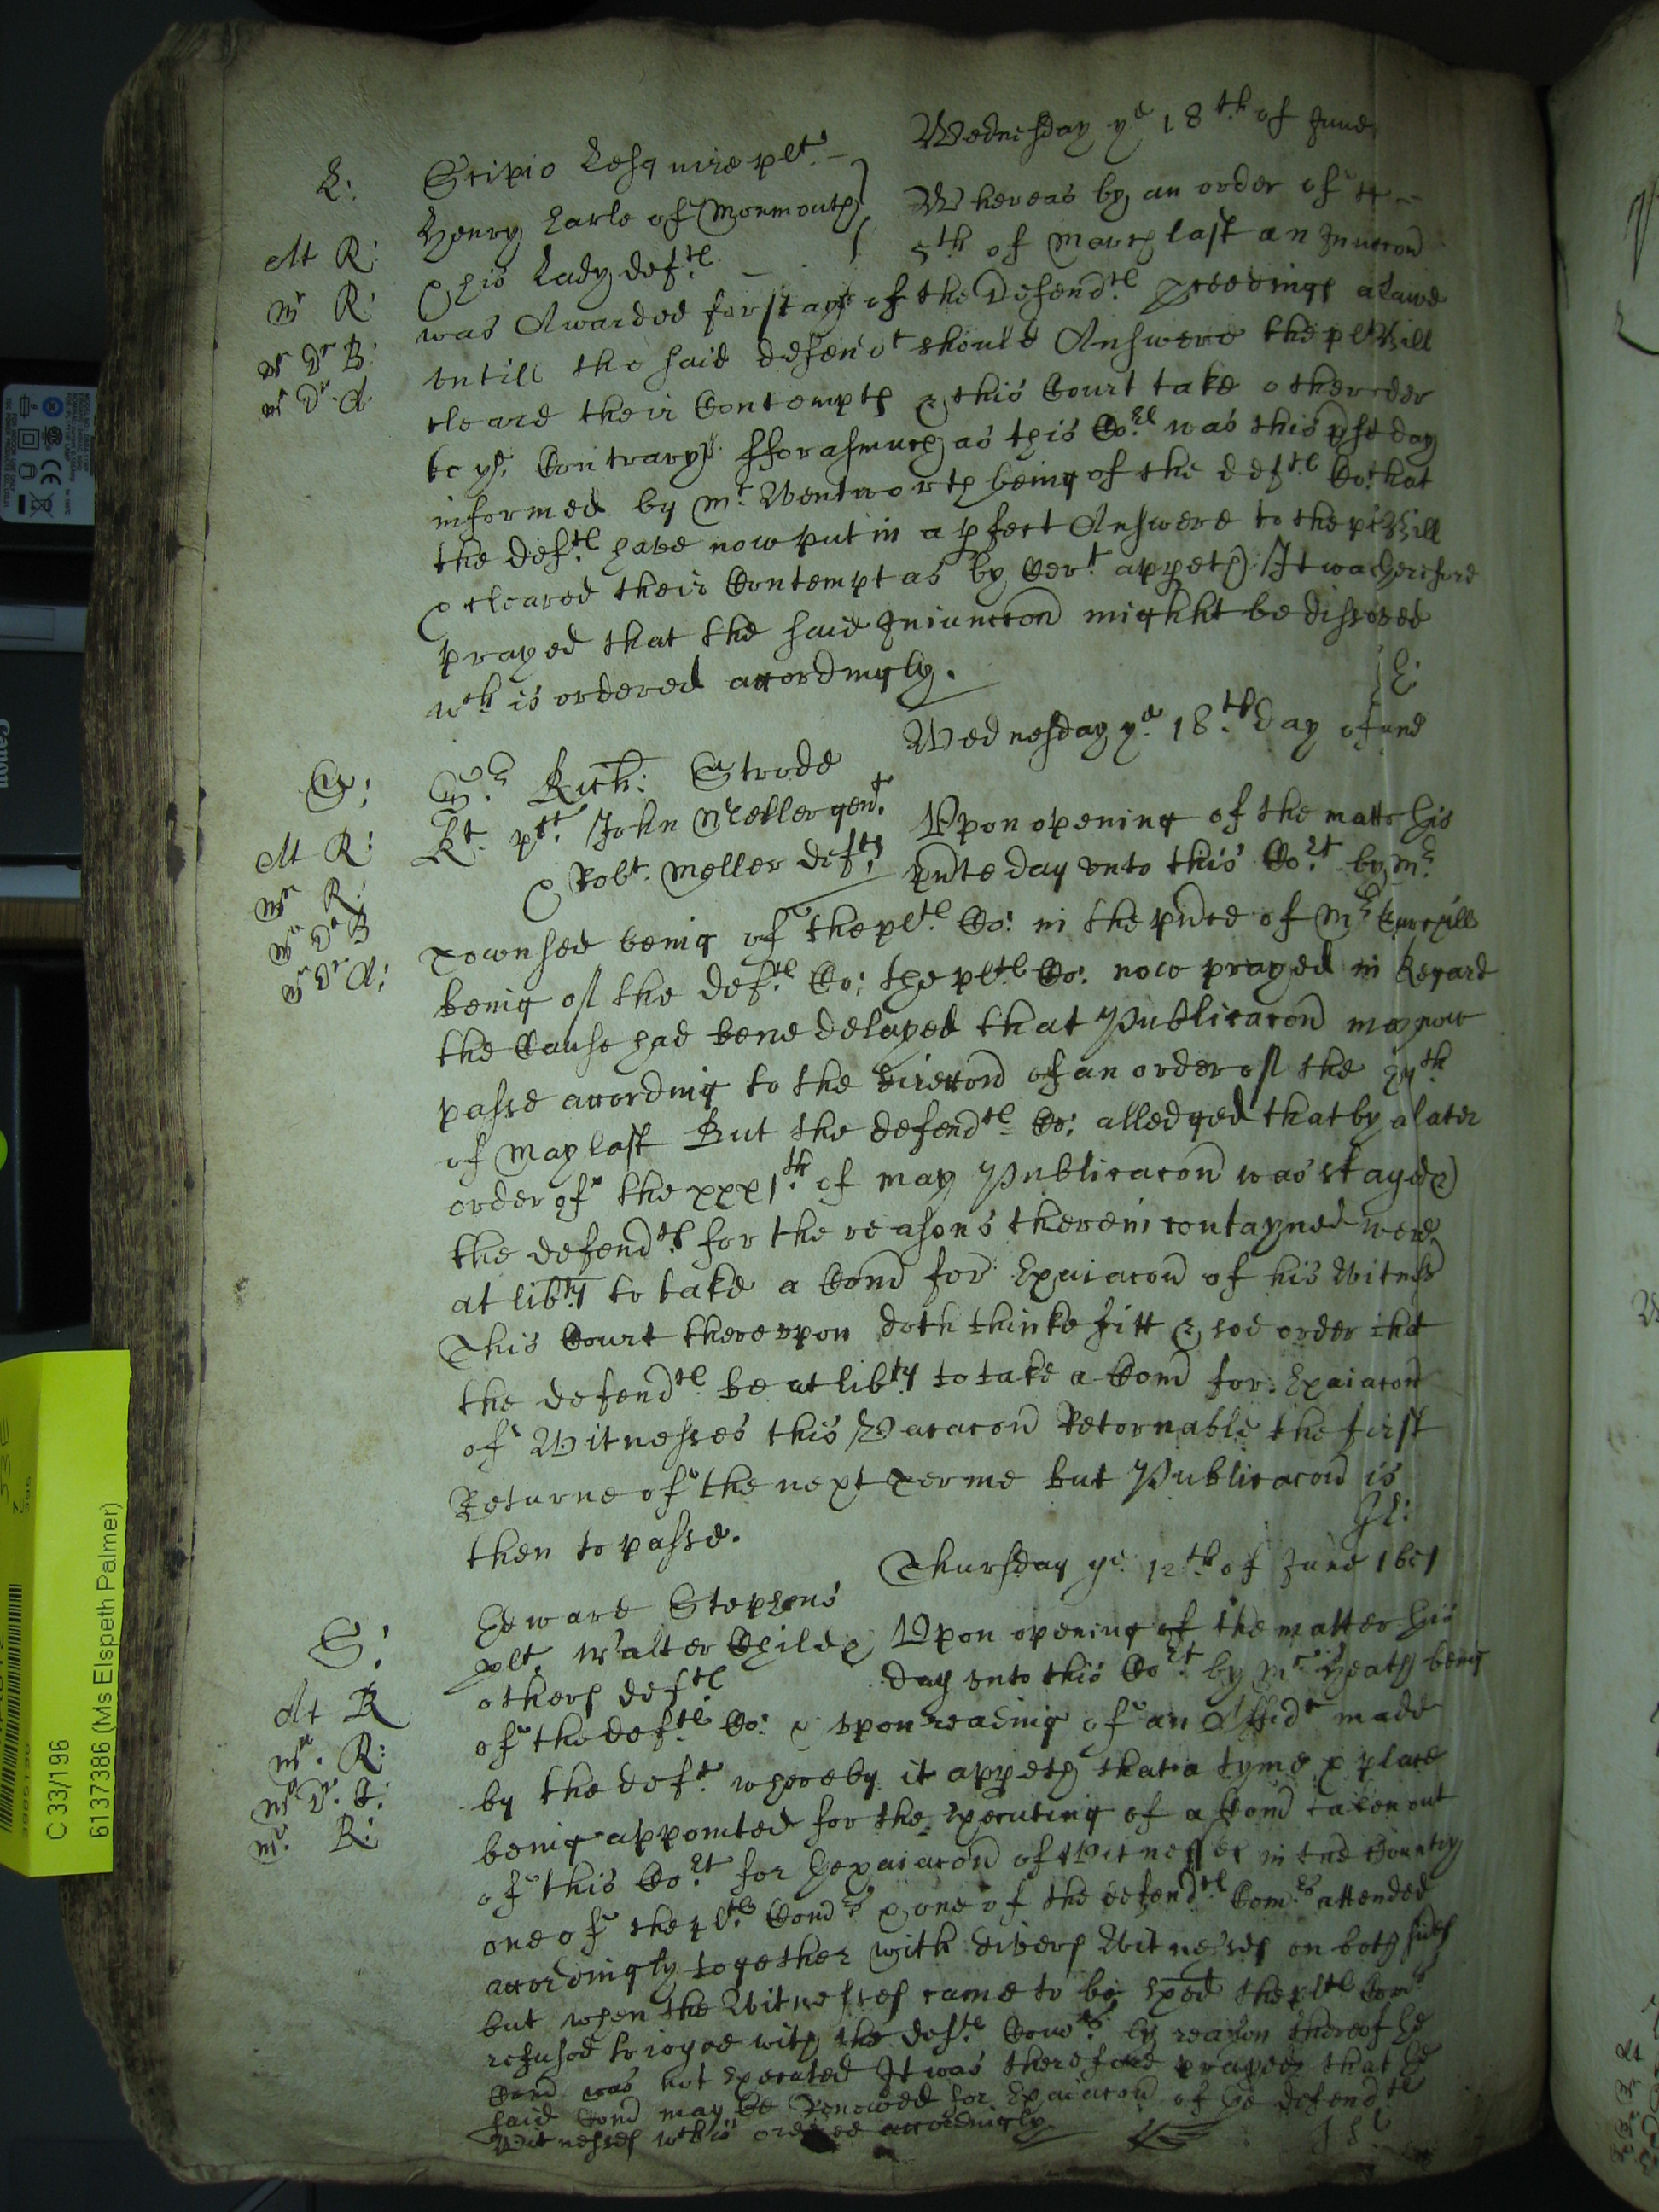 Wednesday ye 18th of June
L: Scipio Lesquire plt
Henry Earle of Monmouth
& his Lady deftes
At R:
Mr R:
Mr Dr B:
Mr Dr A
Whereas by an order of ye
5th of March last an Iniuccon
was Awarded for stay of the Defendtes pceedings at lawe
vntill the said defendt should Answere the plts Bill
cleare their Contempts & this Court take other order
to ye Contrary fforasmuch as this Cort was this pst day
informed by Mr Wentworth being of the deftes Co: that
the deftes have now put in a pfect Answere to the plts Bill
& cleared their Contempt as by Cert appeth It was therefore
prayed that the said Iniunccon might be dissolved
wch is ordered accordingly.
Wednesday ye 18th day of June
S: Sr Rich: Strode
Kt plt John Meller gent
& Robt Meller defts
At R:
Mr R:
Mr Dr B
Mr Dr A:
Vpon opening of the matter this
pnte day vnto this Cort by Mr
Townsed being of the pltes Co: in the pnce of Mr Churchill
being of the deftes Co: the pltes Co: now prayed in Regard
the Cause had bene delayed that Publicacon may now
passe according to the direccon of an order of the
of May last But the defendtes Co: alledged that by a later
order of the xxxith of May Publicacon was stayed &
the defendtes for the reasons therein contayned were
at libty to take a Comd for Exaiacon of his Witness
This Court therevpon doth thinke fitt & soe order that
the defendtes be at libty to take a Comd for Exaiacon
of Witnesses this Vacacon Retornable the first
Returne of the next Terme but Publicacon is
then to passe.
Thursday ye 12th of June 1651
S: Edward Stephens
plt Walter Childe &
others deftes
At R
Mr R:
Mr Dr B:
Mr R:
Vpon opening of the matter this
day vnto this Cort by Mr Heath being
of the deftes Co: & vpon reading of an Affidt made
by the deft whereby it appeth that a tyme & place
being appointed for the executing of a Comd taken out
of this Cort for Exaiacon of Witnesses in the Country
one of the pltes Comrs & one of the defendtes Comrs attended
accordingly together with divers Witnesses on both sides
but when the Witnesses came to be exed the pltes Comr
refused to ioyne with the deftes Comrs by reason thereof the
Comd was not Executed It was therefore prayed that the
said Comd may be Renewed for Exaiacon of the defendtes
Witnesses wch is ordered accordingly
C 33/196
6137386 (Ms Elspeth Palmer)
Canon